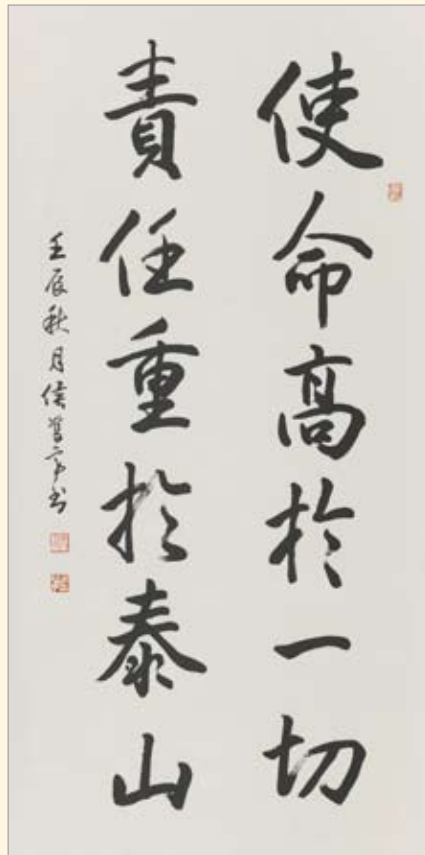 使命高於一切
責任重於泰山
壬辰秋月侯